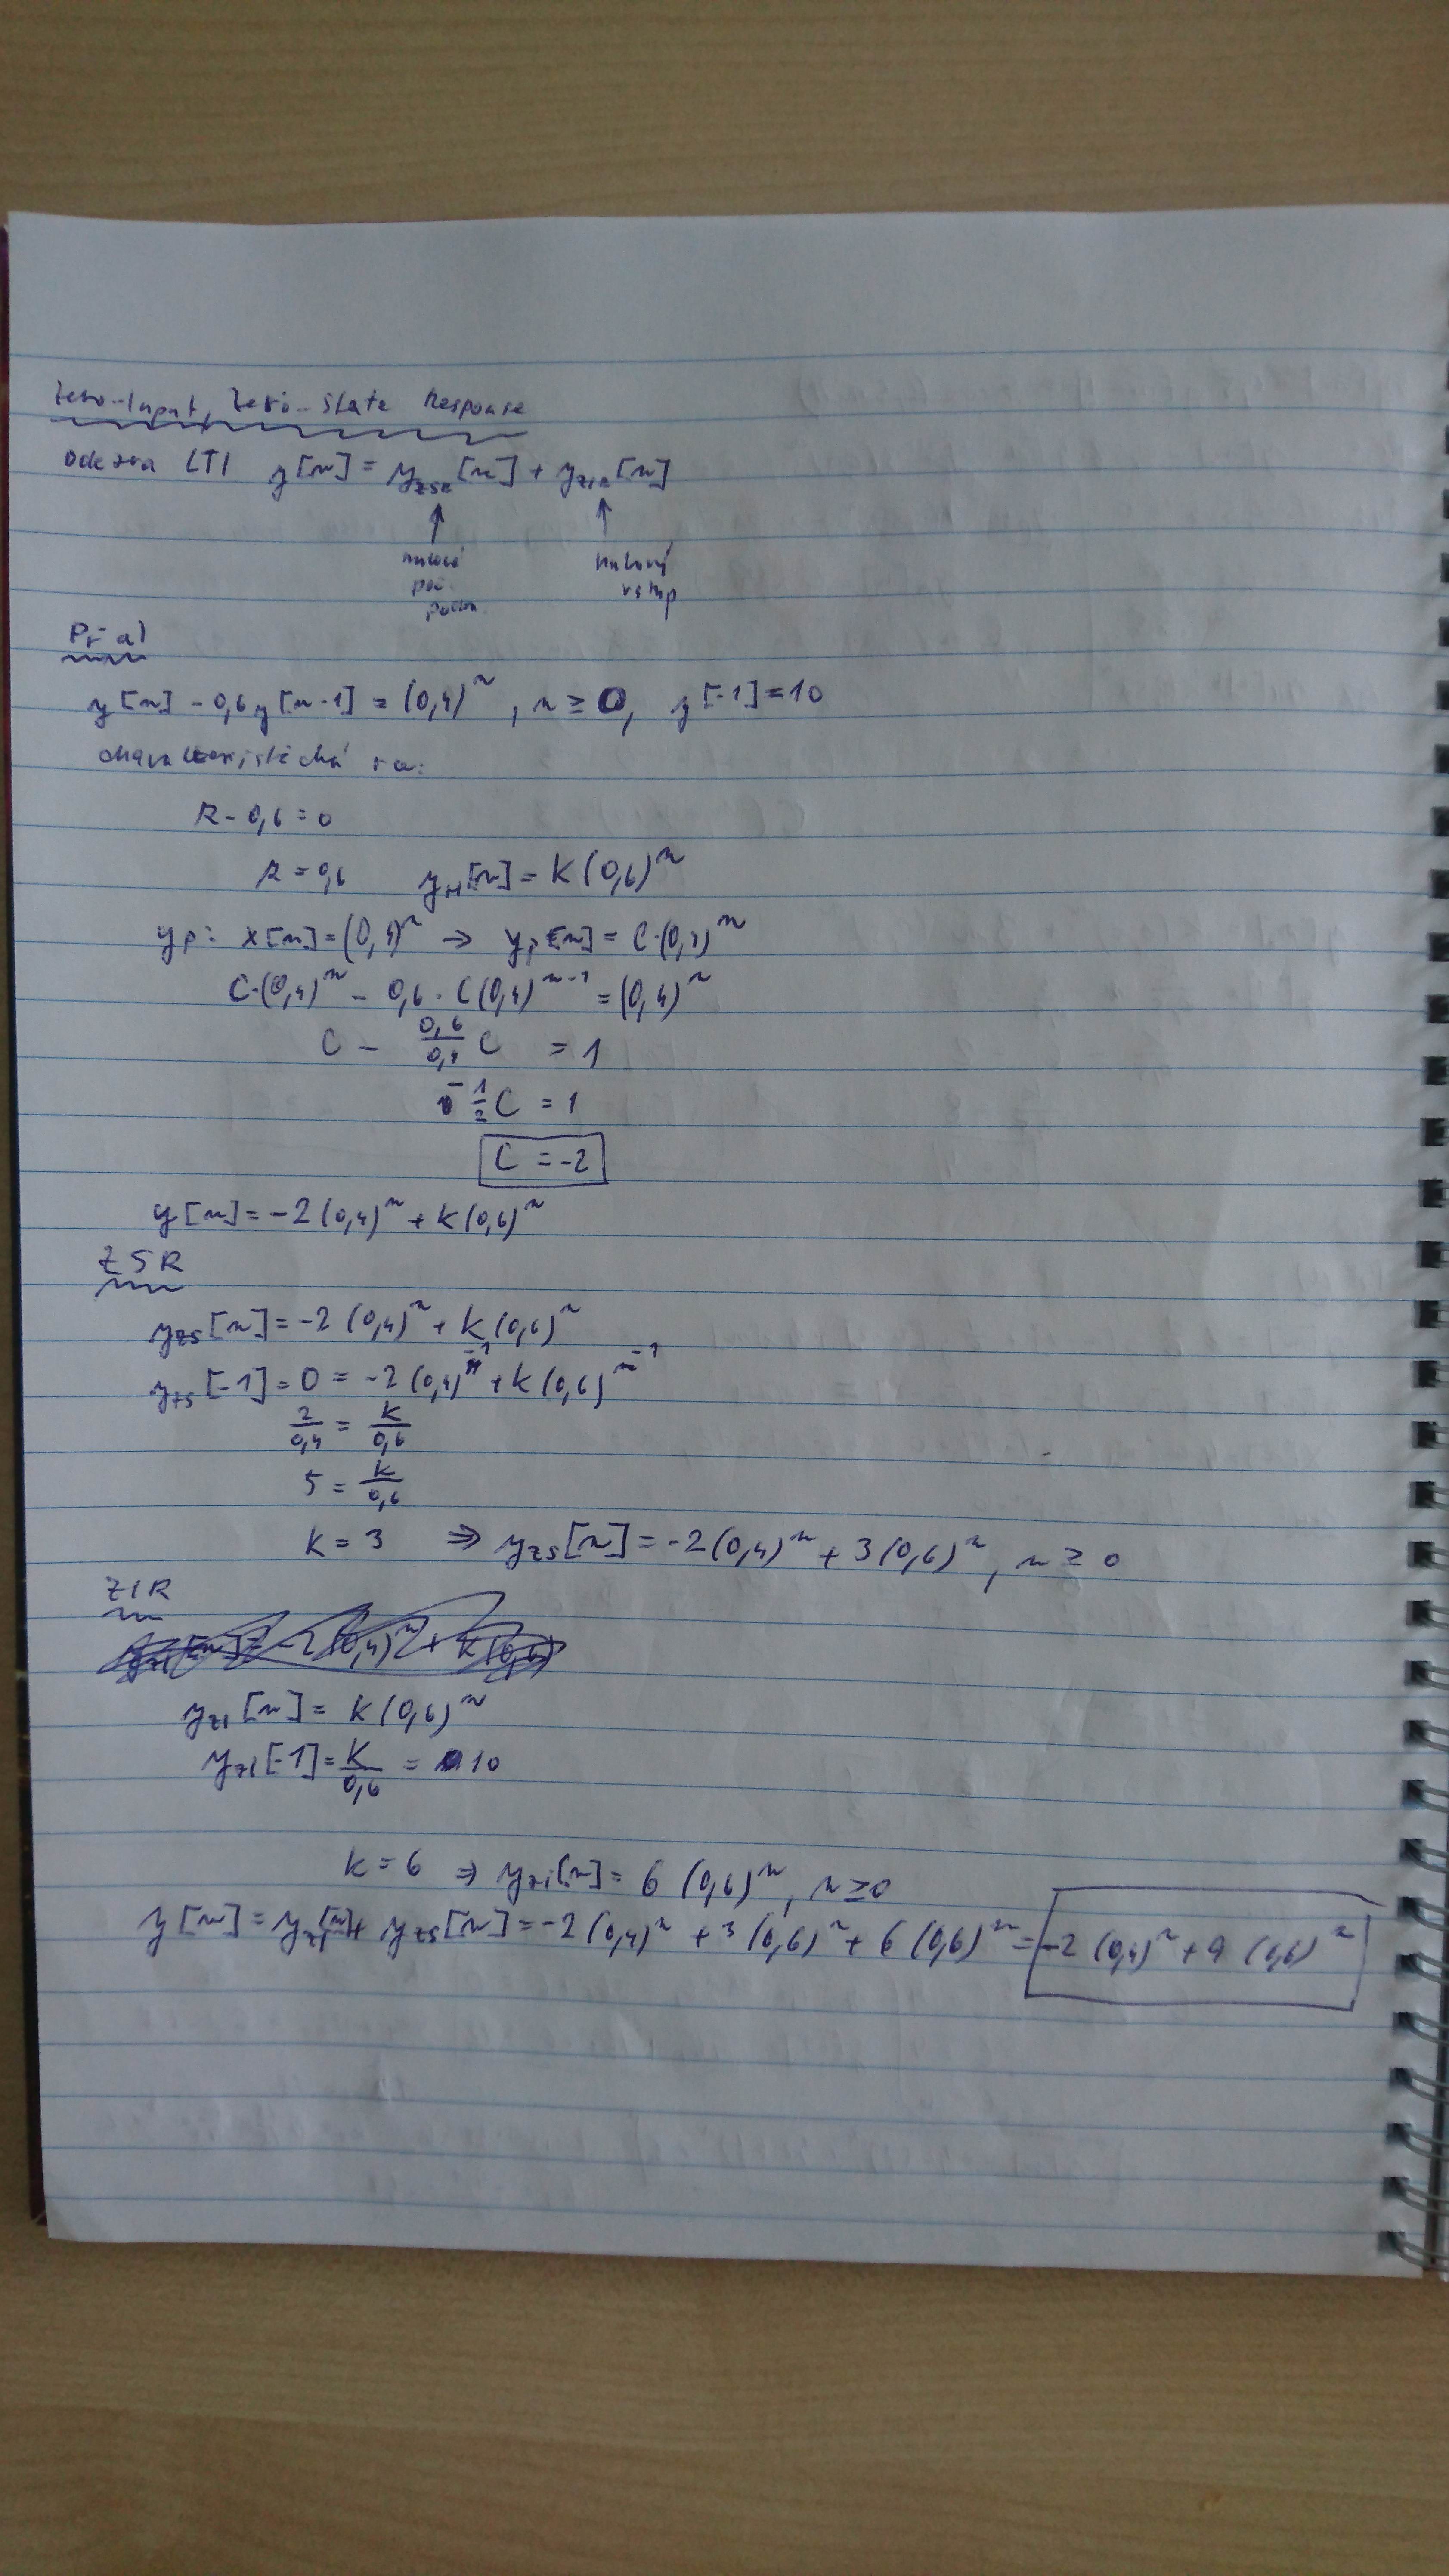 Zero-Input, Zero-State Response
odezva LTI y[n] = y_ZSR[n] + y_ZIR[n]
↑ ↑
nulové nulový
poč. vstup
podm.
Př a)
y[n] - 0,6 y[n-1] = (0,4)^n, n ≥ 0, y[-1] = 10
charakteristická ra:
R - 0,6 = 0
R = 0,6 y_H[n] = K(0,6)^n
yp: x[n] = (0,4)^n → y_p[n] = C·(0,4)^n
C·(0,4)^n - 0,6 · C(0,4)^{n-1} = (0,4)^n
C - \frac{0,6}{0,4} C = 1
-\frac{1}{2} C = 1
C = -2
y[n] = -2(0,4)^n + K(0,6)^n
ZSR
y_zs[n] = -2(0,4)^n + K(0,6)^n
y_zs[-1] = 0 = -2(0,4)^{-1} + K(0,6)^{-1}
\frac{2}{0,4} = \frac{K}{0,6}
5 = \frac{K}{0,6}
K = 3 ⇒ y_zs[n] = -2(0,4)^n + 3(0,6)^n, n ≥ 0
ZIR
y_zi[n] = K(0,6)^n
y_zi[-1] = \frac{K}{0,6} = 10
K = 6 ⇒ y_zi[n] = 6(0,6)^n, n ≥ 0
y[n] = y_zi[n] + y_zs[n] = -2(0,4)^n + 3(0,6)^n + 6(0,6)^n = -2(0,4)^n + 9(0,6)^n